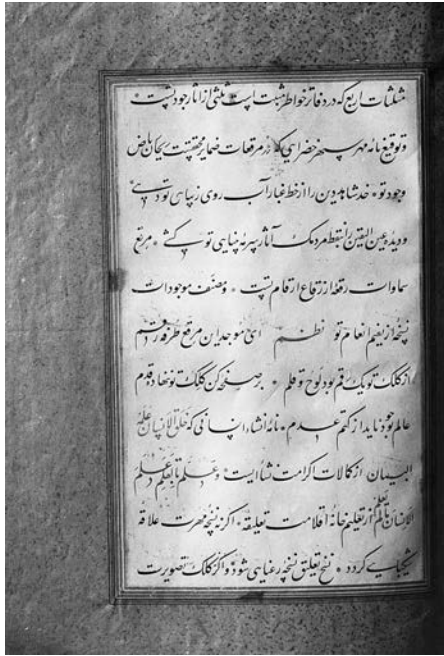 مثلثات اربع که در دفاتر خواطر مثبت است ثلثی از آثار جود تست
و توقیع نامه مهر سپهر خضرایی که در مرقعات ضمایر محققست ریحان ریاض
وجود تو * خد شاهد دین را از خط غبار آب روی زیبایی تو دهی
و دیده عین الیقین را بنقط مردمک آثار سرمه بینایی تو کشی * مرقع
سماوات رقعه از رقاع ارقام تست * و مصنف موجودات
نسخه از نعیم انعام تو نظم ای موجد این مرقع طرفه رقم
از کلک تو یک رقم بود لوح و قلم * بر صفحه کن کلک تو ننهاده قدم
عالم بوجود ناید از کتم عدم * نامه انشاء انسانی که خلق الانسان علمه
البیان از کمالات کرامت نشا ایست و علم بالقلم علم
الانسان مالم یعلم از تعلیم خانه اقلامت تعلیقه * اگر نه نسخه مهرت علاقه
گردد * نسخ تعلیق نسخه رعنایی شود و اگر کلک تصویرت